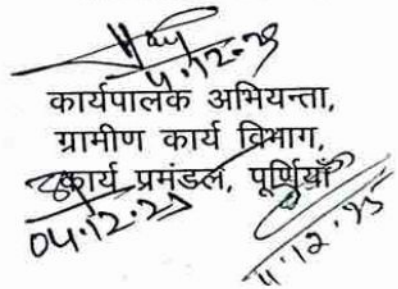 4.12.25
कार्यपालक अभियन्ता,
ग्रामीण कार्य विभाग,
कार्य प्रमंडल, पूर्णियाँ
04.12.25